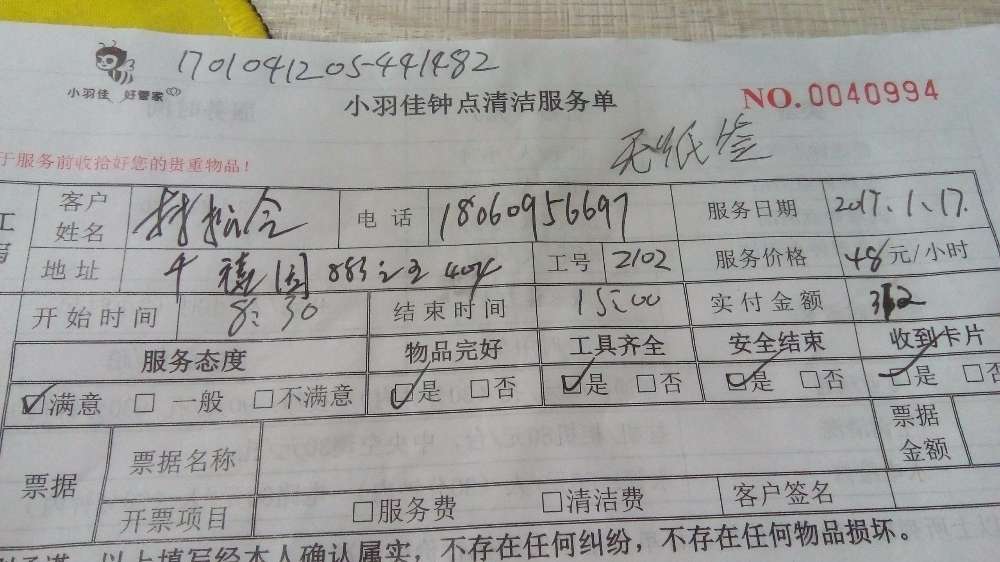 1701041205-441482
小羽佳 好管家
小羽佳钟点清洁服务单
NO.0040994
于服务前收拾好您的贵重物品！
无纸
客户姓名 电话 18060956697 服务日期 2017.1.17.
地址 禧园 883 工号 2102 服务价格 48元/小时
开始时间 8:30 结束时间 15:00 实付金额 312
服务态度 物品完好 工具齐全 安全结束 收到卡片
满意 一般 不满意 是 否 是 否 是 否 是 否
票据 票据名称 票据金额
开票项目 服务费 清洁费 客户签名
以上填写经本人确认属实，不存在任何纠纷，不存在任何物品损坏。